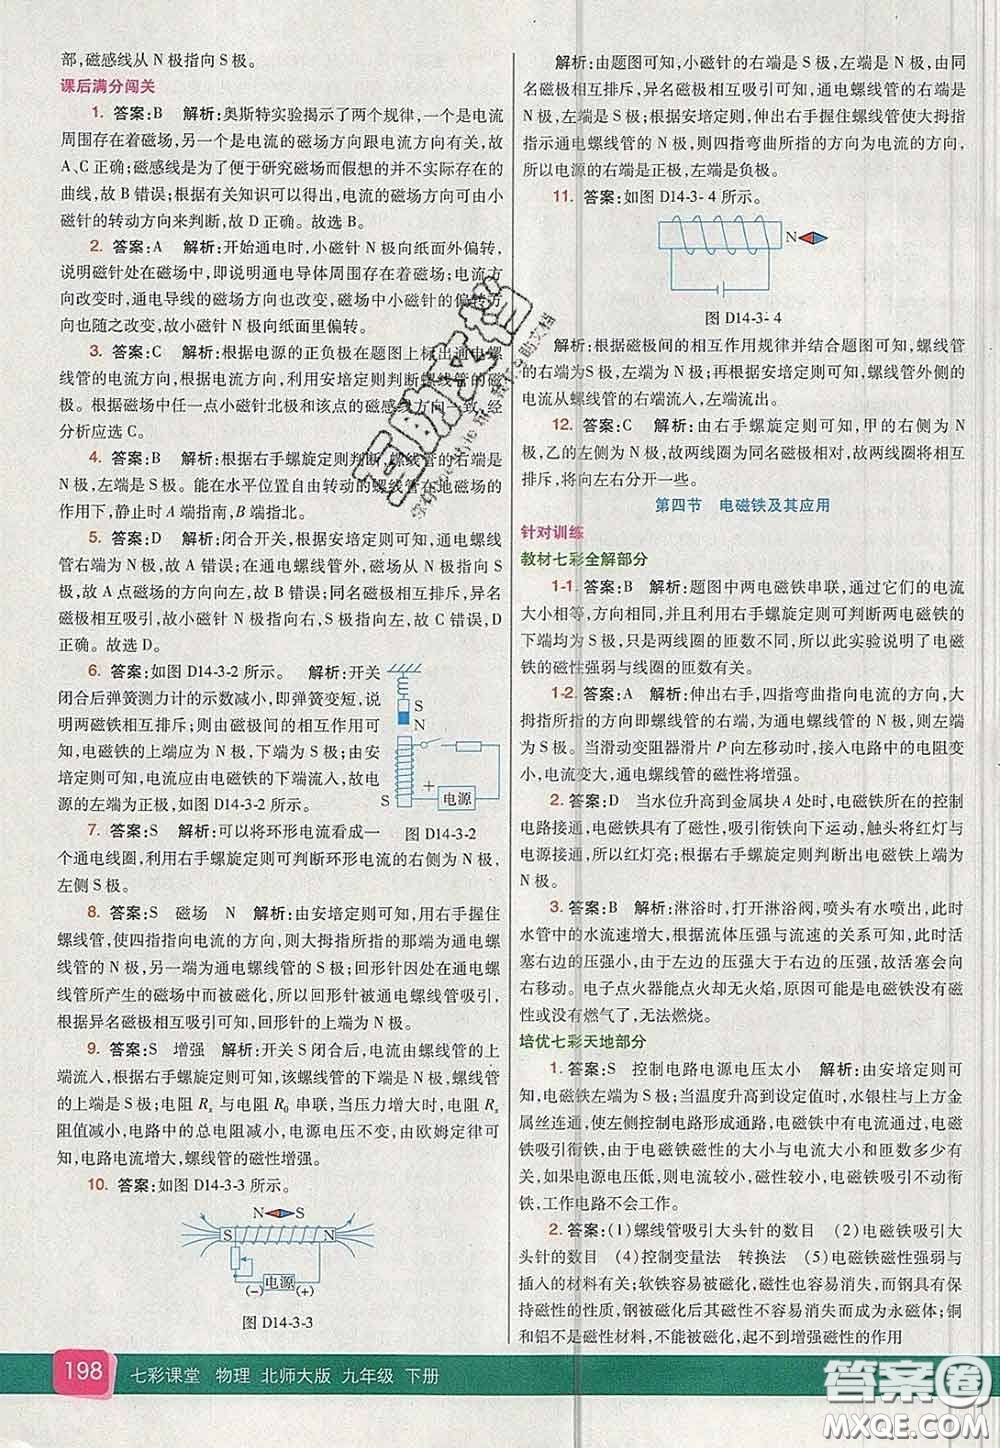 部,磁感线从 N 极指向 S 极。
课后满分闯关
1. 答案:B 解析:奥斯特实验揭示了两个规律,一个是电流
周围存在着磁场,一个是电流的磁场方向跟电流方向有关,故
A、C 正确;磁感线是为了便于研究磁场而假想的并不实际存在的
曲线,故 B 错误;根据有关知识可以得出,电流的磁场方向可由小
磁针的转动方向来判断,故 D 正确。故选 B。
2. 答案:A 解析:开始通电时,小磁针 N 极向纸面外偏转,
说明磁针处在磁场中,说明通电导体周围存在着磁场,当电流的
方向改变时,通电导线的磁场方向也改变,磁场中小磁针的偏转方
向也随之改变,故小磁针 N 极向纸面里偏转。
3. 答案:C 解析:根据电源的正负极在题图上标出通电螺
线管的电流方向,利用安培定则判断螺线管的磁
极。根据磁场中任一点小磁针北极和该点的磁感线方向一致,经
分析应选 C。
4. 答案:B 解析:根据右手螺旋定则判断,螺线管的右端是
N 极,左端是 S 极。能在水平位置自由转动的螺线管在地磁场
的作用下,静止时 A 端指南,B 端指北。
5. 答案:D 解析:闭合开关,根据安培定则可知,通电螺线
管右端为 N 极,左端为 S 极,故 A 错误;在通电螺线管外部,螺线
管右端的磁感线的方向向左,故 B 错误;同名磁极相互排斥,异
名磁极相互吸引,故小磁针 N 极指向右,S 极指向左,故 C 错误,D
正确。故选 D。
6. 答案:如图 D14-3-2 所示。 解析:开关
闭合后弹簧测力计的示数减小,即弹簧变短,说
明两磁铁相互排斥;则由磁极间的相互作用可
知,电磁铁的上端应为 N 极,下端为 S 极;由安
培定则可知,电流应由电磁铁的下端流入,故电
源的左端为正极,如图 D14-3-2 所示。
S
N
S
+
电源
图 D14-3-2
7. 答案:S 解析:可以将环形电流看成一
个通电线圈,利用右手螺旋定则可判断环形电流的右侧为 N 极,
左侧 S 极。
8. 答案:S 磁场 N 解析:由安培定则可知,用右手握住
螺线管,使四指指向电流的方向,则大拇指所指的那端为通电螺
线管的 N 极,另一端为通电螺线管的 S 极;回形针因处在通电螺
线管所产生的磁场中而被磁化,所以回形针被通电螺线管吸引,
根据异名磁极相互吸引可知,回形针的上端为 N 极。
9. 答案:S 增强 解析:开关 S 闭合后,电流由螺线管的上
端流入,根据安培定则可知,该螺线管的下端是 N 极,则该螺线管
的上端是 S 极;电阻 Rx 与电阻 R0 串联,当压力增大时,电阻 Rx
阻值减小,电路中的总电阻减小,电源电压不变,由欧姆定律可
知,电路电流增大,螺线管的磁性增强。
10. 答案:如图 D14-3-3 所示。
N S
S N
电源
(−) (+)
图 D14-3-3
解析:由题图可知,小磁针的右端是 S 极,左端是 N 极,由同
名磁极相互排斥,异名磁极相互吸引可知,通电螺线管的右端是
N 极,左端是 S 极;根据安培定则,伸出右手握住螺线管使大拇指
指示通电螺线管的 N 极,则四指弯曲所指的方向为电流的方向,
所以电源的右端是正极,左端是负极。
11. 答案:如图 D14-3-4 所示。
N
图 D14-3-4
解析:根据磁极间的相互作用规律并结合题图可知,螺线管
的右端为 S 极,左端是 N 极;再根据安培定则可知,螺线管外侧的
电流从螺线管的右端流入,左端流出。
12. 答案:C 解析:由右手螺旋定则可知,甲的右侧为 N
极,乙的左侧为 N 极,故两线圈为同名磁极相对,故两线圈相互排
斥,将向左右分开一些。
第四节 电磁铁及其应用
针对训练
教材七彩全解部分
1-1. 答案:B 解析:题图中两电磁铁串联,通过它们的电流
大小相等,方向相同,并且利用右手螺旋定则可判断两电磁铁的
下端均为 S 极,只是两线圈的匝数不同,所以此实验说明了电磁
铁的磁性强弱与线圈的匝数有关。
1-2. 答案:A 解析:伸出右手,四指弯曲指向电流的方向,大
拇指所指的方向即螺线管的右端,为通电螺线管的 N 极,则左端
为 S 极。当滑动变阻器滑片 P 向左移动时,接入电路中的电阻变
小,电流变大,通电螺线管的磁性将增强。
2. 答案:D 当水位升高到金属块 A 处时,电磁铁所在的控制
电路接通,电磁铁具有了磁性,吸引衔铁向下运动,触头将红灯与
电源接通,所以红灯亮;根据右手螺旋定则判断出电磁铁上端为
N 极。
3. 答案:B 解析:淋浴时,打开淋浴阀,喷头有水喷出,此时
水管中的水流速增大,根据流体压强与流速的关系可知,此时活
塞右边的压强减小,由于左边的压强大于右边的压强,故活塞向
右移动。电子点火器能点火却无火焰,可能的原因是液化器无磁
性或没有燃气了,无法燃烧。
培优七彩天地部分
1. 答案:S 控制电路电源电压太小 解析:由安培定则可知
电磁铁下端为 S 极;当温度升高到设定值时,水银柱与上方金
属丝连通,使左侧控制电路形成通路,电磁铁中有电流通过,电磁
铁吸引衔铁;电磁铁磁性的大小与电流大小和线圈匝数多少有关,
如果电源电压低,则电流太小,磁性较小,则电磁铁吸引不动衔
铁,工作电路不会工作。
2. 答案:(1)螺线管吸引大头针的数目 (2)电磁铁吸引大
头针的数目 (4)控制变量法 转换法 (5)电磁铁磁性强弱与
插入的材料有关;软铁容易被磁化,磁性也容易消失,而钢具有保
持磁性的性质,钢被磁化后其磁性不容易消失而成为永磁体;铜
和铝不是磁性材料,不能被磁化,起不到增强磁性的作用
198 七彩课堂 物理 北师大版 九年级 下册
答案圈
MXQE.COM